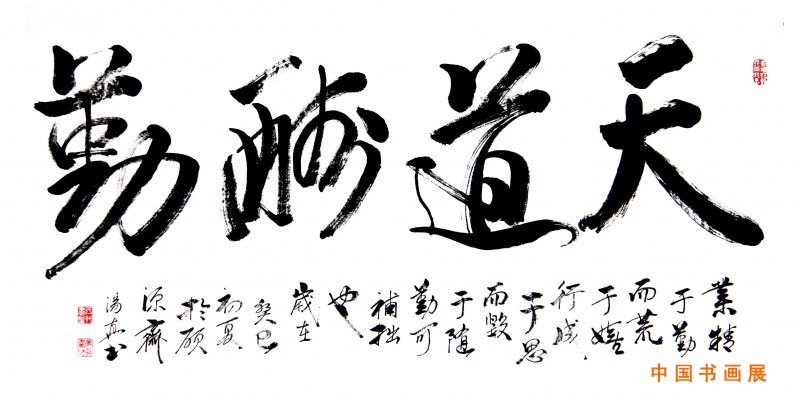 天道酬勤
業精
于勤
而荒
于嬉
行成
于思
而毀
于随
勤可
補拙
也
歲在
癸巳
初夏
於硕
源齋
中国书画展